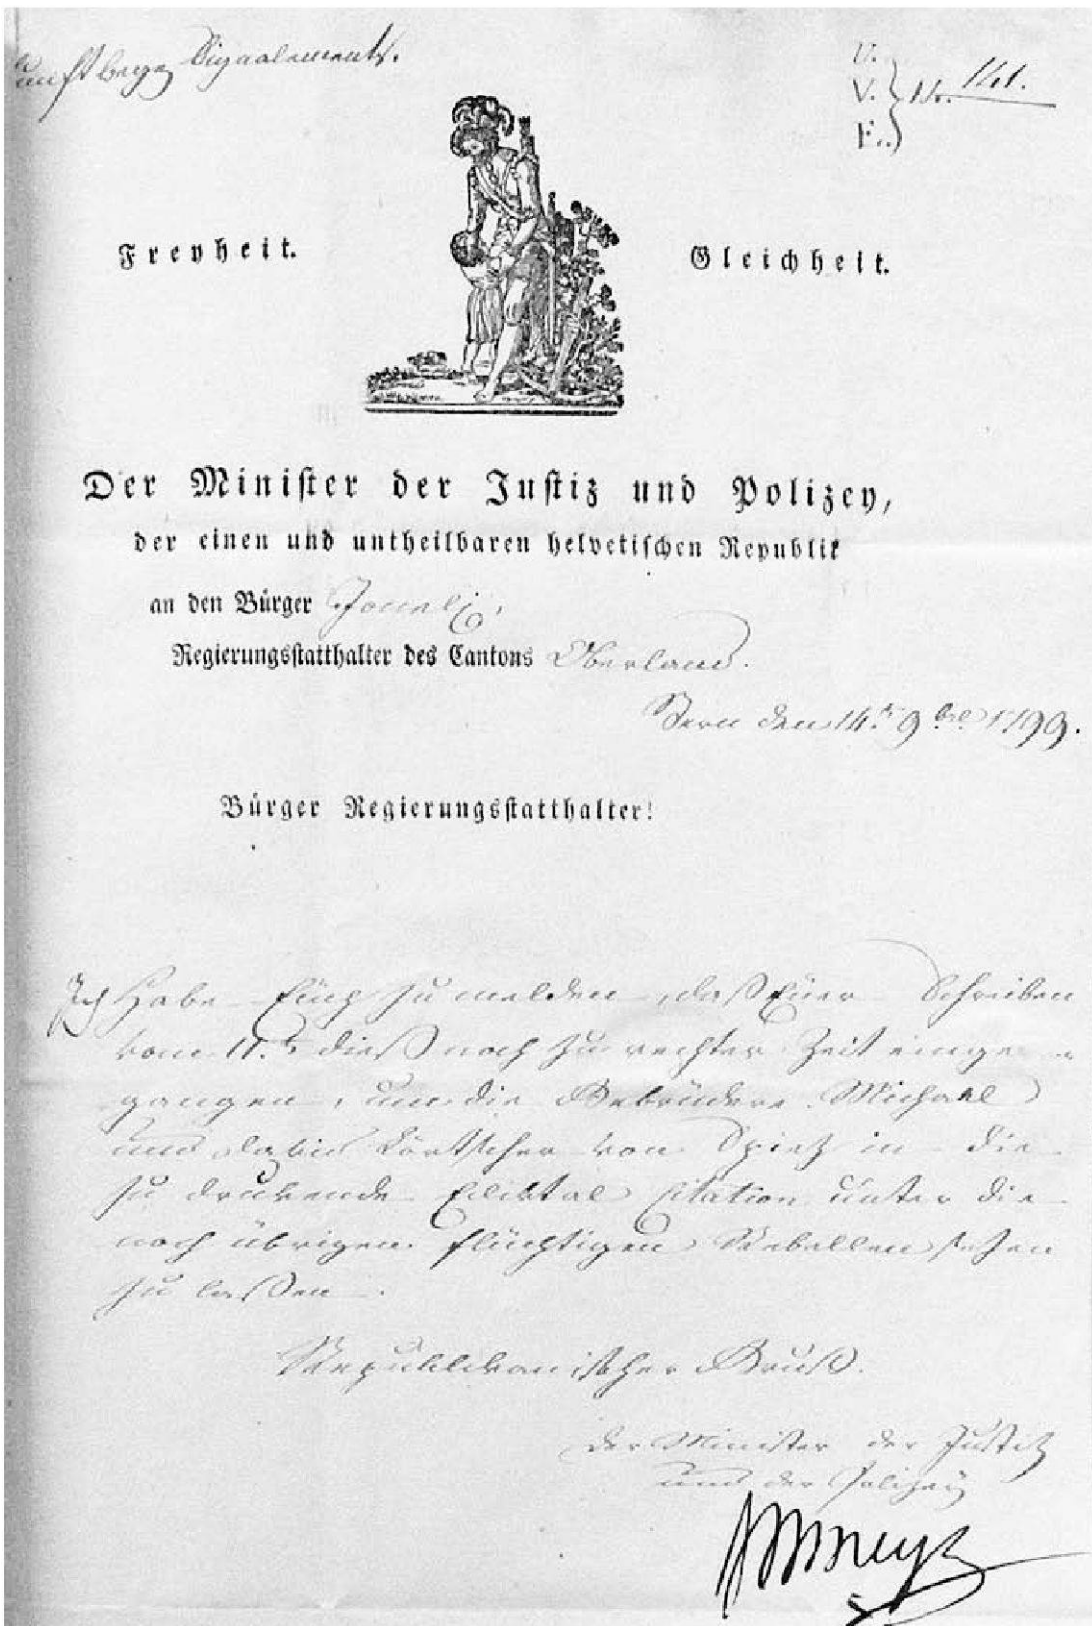 Signalements.
U.
V. N. 141.
F.
Freyheit. Gleichheit.
Der Minister der Justiz und Polizey,
der einen und untheilbaren helvetischen Republik
an den Bürger Joneli,
Regierungsstatthalter des Cantons Oberland.
Bern den 14t. 9bre 1799.
Bürger Regierungsstatthalter!
Ich habe Euch zu melden, daß Euer Schreiben
vom 11.t dieß noch zu rechter Zeit einge-
gangen, um die Gebrüdere Michael
und Lörtscher von Spiez in die
zu drukende Ediktal Citation unter die
noch übrigen flüchtigen Rebellen sezen
zu laßen.
Republikanischer Gruß.
Der Minister der Justiz
und der Polizey